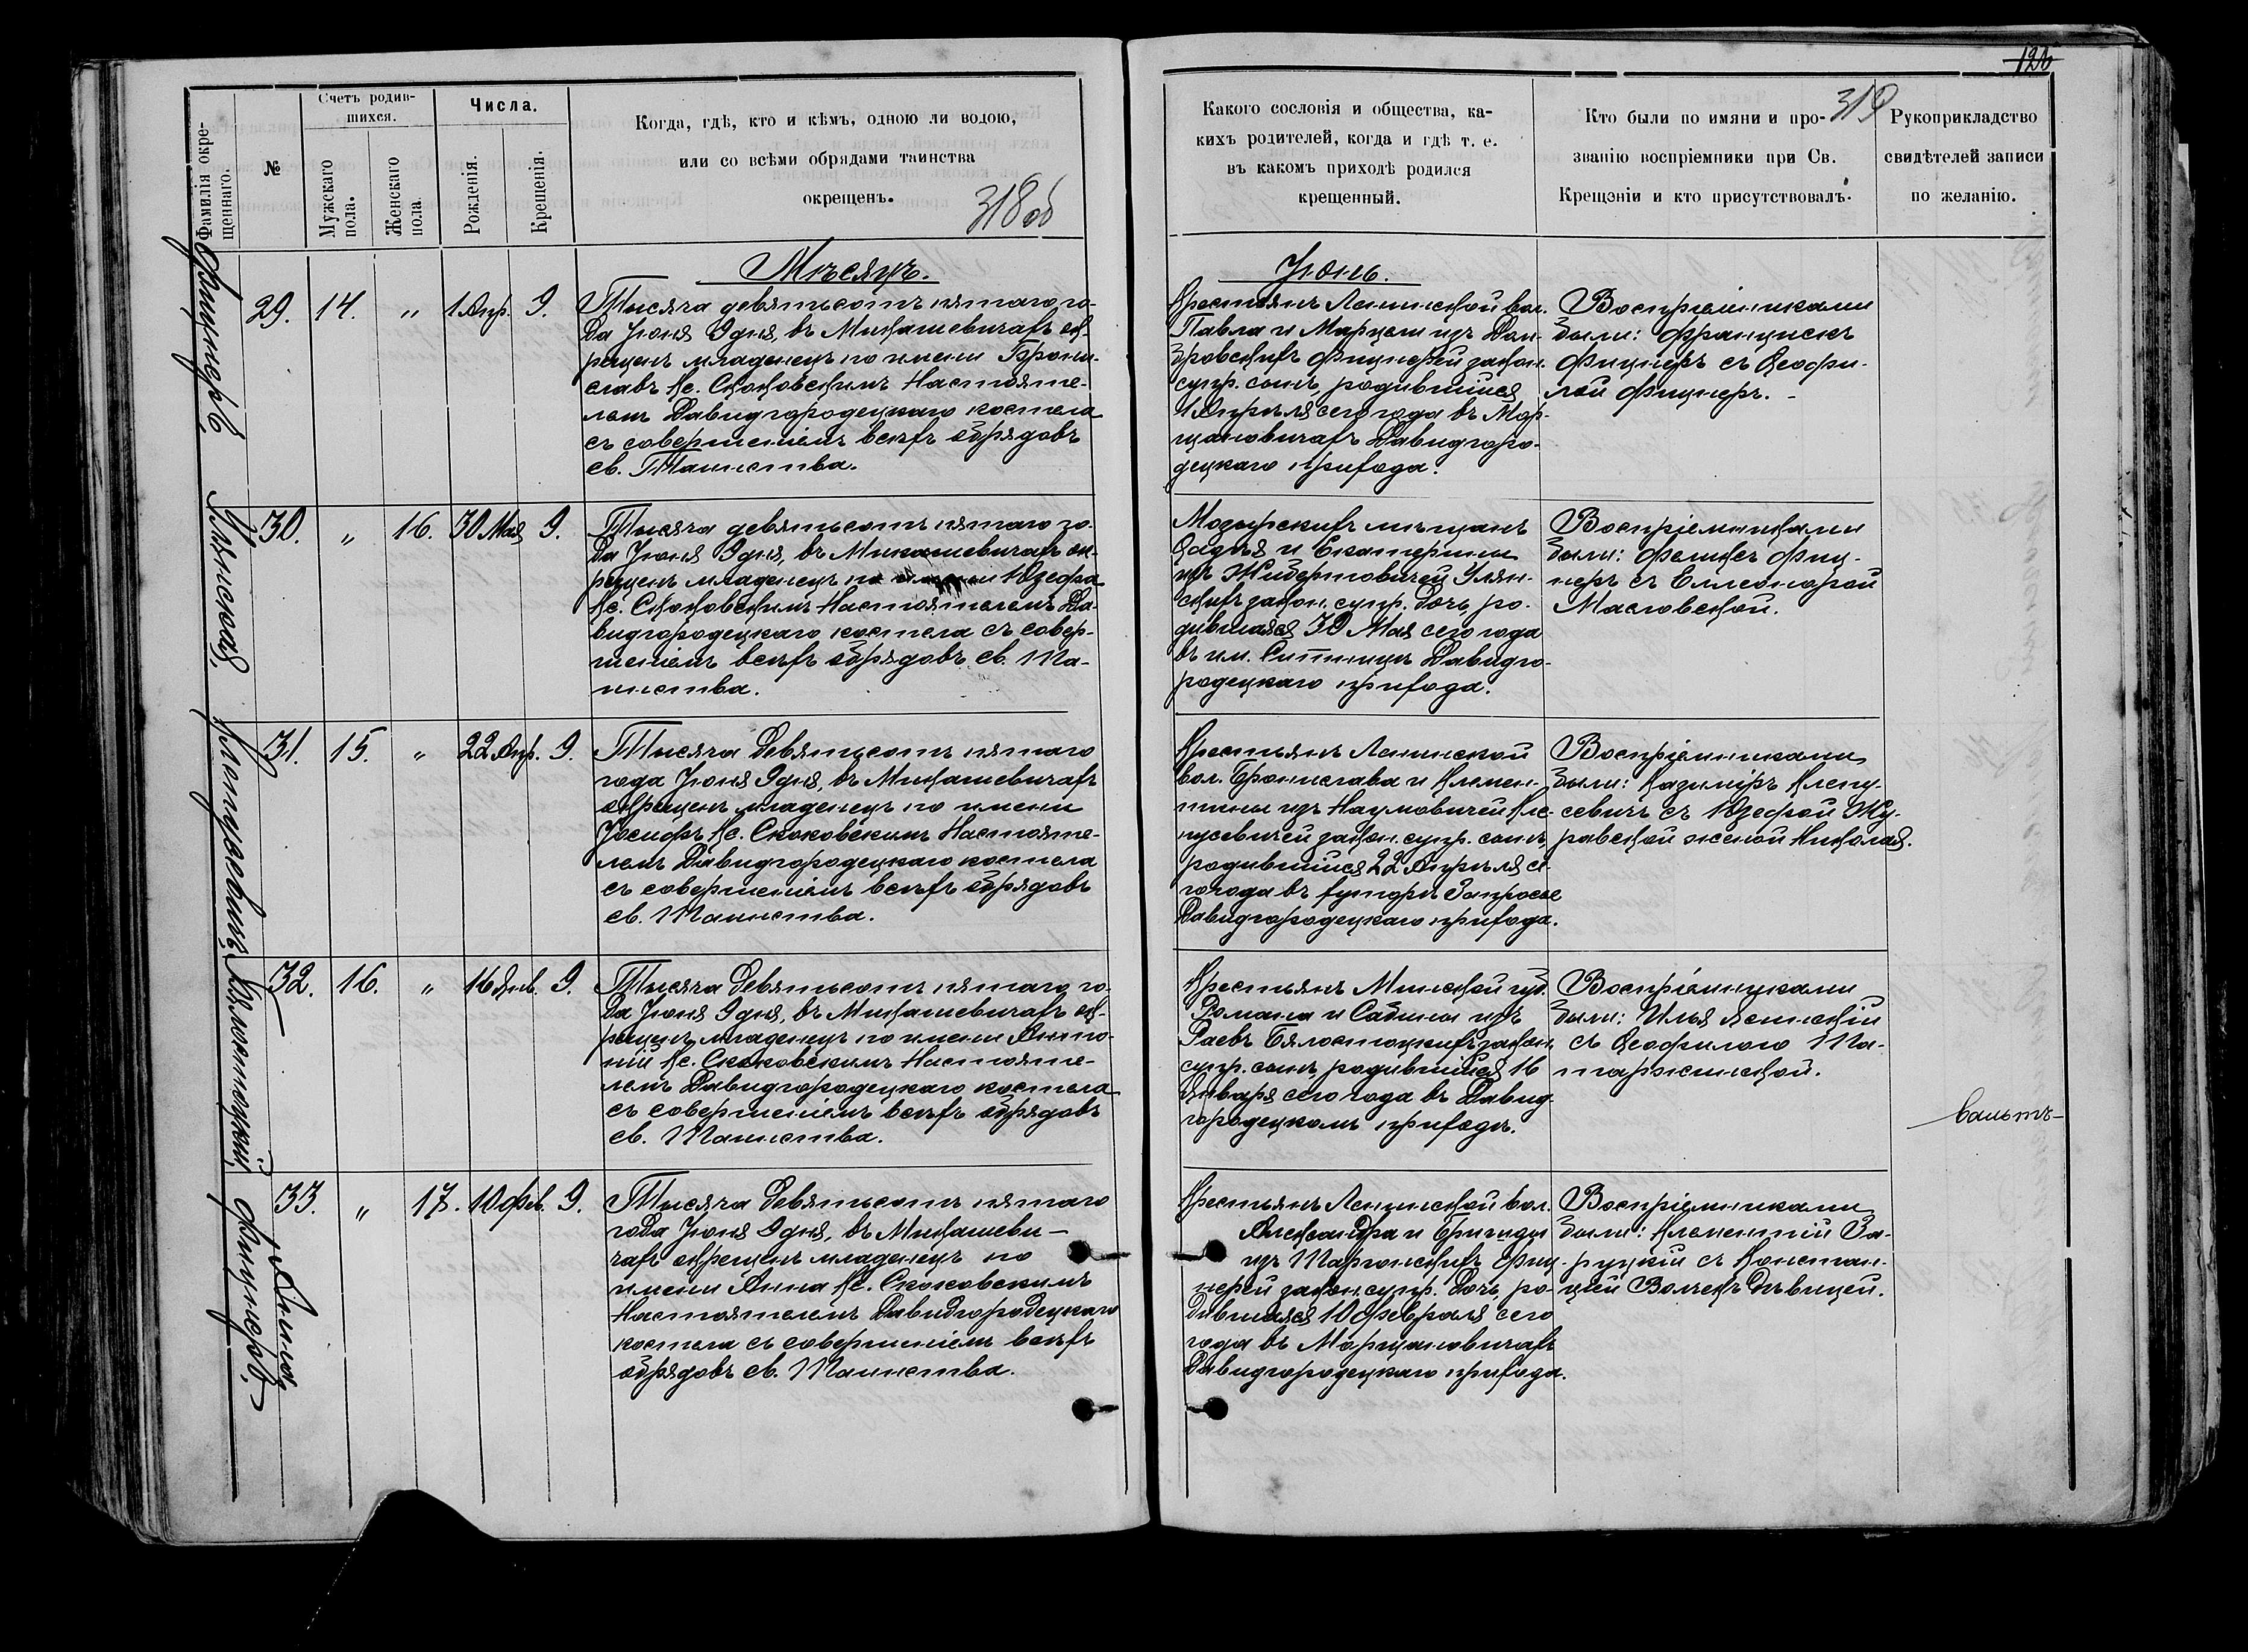 126
319
318 об
Фамилія окре-
щеннаго.
№
Счетъ родив-
шихся.
Мужскаго
пола.
Женскаго
пола.
Числа.
Рожденія.
Крещенія.
Когда, гдѣ, кто и кѣмъ, одною ли водою,
или со всѣми обрядами таинства
окрещенъ.
Какого сословія и общества, ка-
кихъ родителей, когда и гдѣ т. е.
въ какомъ приходѣ родился
крещенный.
Кто были по имяни и про-
званію воспріемники при Св.
Крещэніи и кто присутствовалъ.
Рукоприкладство
свидѣтелей записи
по желанію.
Мѣсяцъ.
Іюнь.
Фицнеръ.
29. 14. " 1 Апр. 9.
Тысяча девятьсотъ пятаго го-
да Іюня 9 дня, въ Микашевичахъ ок-
рещенъ младенецъ по имени Брони-
славъ Кс. Скоковскимъ Настояте-
лемъ Давидгородецкаго костела
съ совершеніемъ всѣхъ обрядовъ
св. Таинства.
Крестьянъ Ленинской вол.
Павла и Марцели изъ Дом-
бровскихъ Фицнерей закон.
супр. сынъ, родившійся
1 Апрѣля сего года въ Мор-
щановичахъ Давидгоро-
децкаго прихода.
Воспріемниками
были: Францискъ
Фицнеръ съ Ѳеофи-
лой Фицнеръ.
Улянская.
30. " 16. 30 Мая 9.
Тысяча девятьсотъ пятаго го-
да Іюня 9 дня, въ Микашевичахъ ок-
рещенъ младенецъ по имени Юзефа
Кс. Скоковскимъ Настоятелемъ Да-
видгородецкаго костела съ совер-
шеніемъ всѣхъ обрядовъ св. Та-
инства.
Мозырскихъ мѣщанъ
Ѳадѣя и Екатерины
изъ Жибертовичей Улян-
скихъ закон. супр. дочь, ро-
дившаяся 30 Мая сего года
въ им. Ситницѣ Давидго-
родецкаго прихода.
Воспріемниками
были: Феликсъ Фиц-
неръ съ Еллеонорой
Масловской.
Клепусевичъ
31. 15. " 22 Апр. 9.
Тысяча девятьсотъ пятаго
года Іюня 9 дня, въ Микашевичахъ
окрещенъ младенецъ по имени
Іосифъ Кс. Скоковскимъ Настояте-
лемъ Давидгородецкаго костела
съ совершеніемъ всѣхъ обрядовъ
св. Таинства.
Крестьянъ Ленинской
вол. Бронислава и Клемен-
тины изъ Наумовичей Кле-
пусевичей закон. супр. сынъ,
родившійся 22 Апрѣля се-
го года въ хуторѣ Запросье
Давидгородецкаго прихода.
Воспріемниками
были: Казиміръ Клепу-
севичъ съ Юзефой Жу-
равской женой Николая.
Бялостоцкій
32. 16. " 16 Янв. 9.
Тысяча девятьсотъ пятаго го-
да Іюня 9 дня, въ Микашевичахъ ок-
рещенъ младенецъ по имени Анто-
ній Кс. Скоковскимъ Настояте-
лемъ Давидгородецкаго костела
съ совершеніемъ всѣхъ обрядовъ
св. Таинства.
Крестьянъ Минской губ.
Романа и Сабины изъ
Раевъ Бялостоцкихъ закон.
супр. сынъ, родившійся 16
Января сего года въ Давид-
городецкомъ приходѣ.
Воспріемниками
были: Илья Ленскій
съ Ѳеофилою Та-
таржинской.
Фицнеръ.
Анна
33. " 17. 10 Фев. 9.
Тысяча девятьсотъ пятаго
года Іюня 9 дня, въ Микашеви-
чахъ окрещенъ младенецъ по
имени Анна Кс. Скоковскимъ
Настоятелемъ Давидгородецкаго
костела съ совершеніемъ всѣхъ
обрядовъ св. Таинства.
Крестьянъ Ленинской вол.
Александра и Бригиды
изъ Маргонскихъ Фиц-
нерей закон. супр. дочь, ро-
дившаяся 10 Февраля сего
года въ Морщановичахъ
Давидгородецкаго прихода.
Воспріемниками
были: Клементій За-
руцкій съ Констан-
ціей Волчекъ дѣвицей.